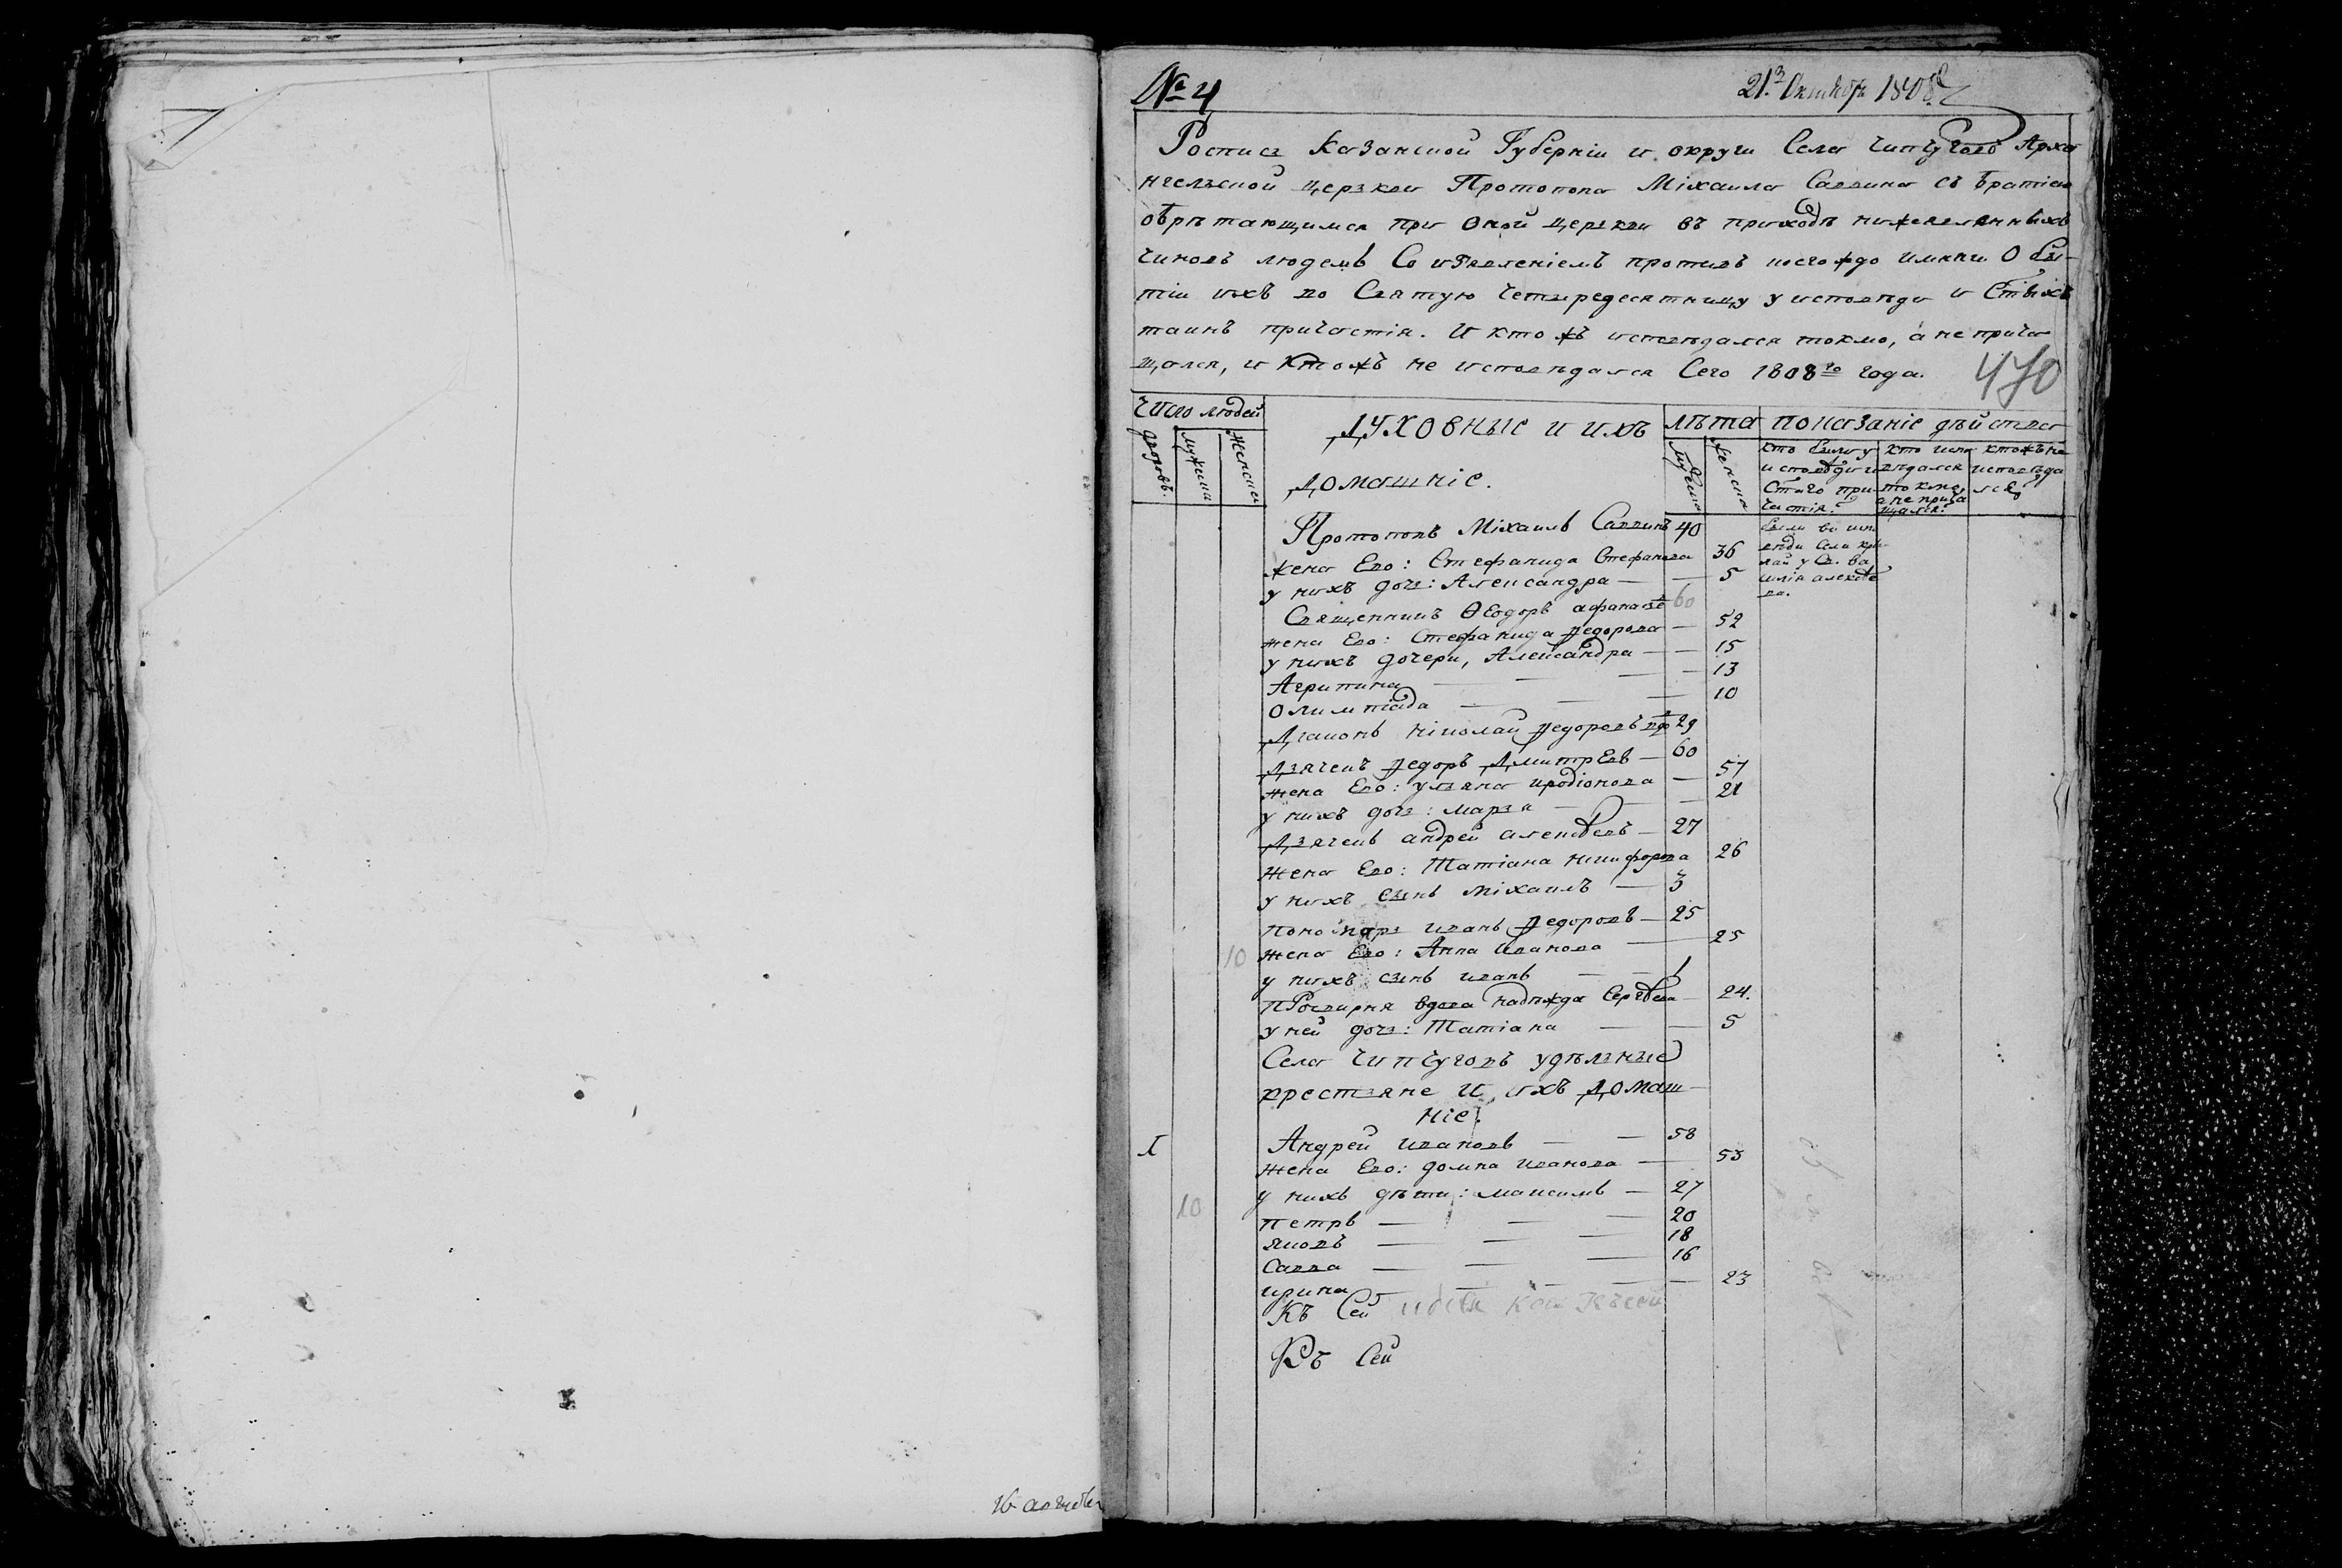 № 4
21. Октября 1808
Роспись Казанской Губерніи и округи Села Чипчуговъ Арха
нгельской церкви Протопопа Міхаила Саввина съ братіею
обрѣтающимся при оной церкви въ приходѣ нижеявленныхъ
чиновъ людемъ Со изъявленіемъ противъ коегождо имяни О бы-
тіи ихъ во Святую четыредесятницу у исповѣди и Стыхъ
таинъ причастія. И кто жъ исповѣдался токмо, а не прича
щался, и ктожъ не исповѣдался Сего 1808го года.
470
Число людей
дворовъ.
мужеска
женска
Духовные и ихъ
Домашніе.
лѣта
мужеска
женска
показаніе дѣйства
кто были у
исповѣди и
Стаго при
частія.
кто испо
вѣдался
токмо,
а не прича
щался.
ктожъ не
исповѣда
лся
Протопопъ Міхаилъ Саввинъ 40
были во испо
вѣди
жена Его: Стефанида Стефанова 36
у нихъ дочь: Александра — — 5
Священникъ Ѳеодоръ афанасіе 60
жена Его: Стефанида Федорова — 52
у нихъ дочери, Александра — — 15
Агрипина — — — 13
Олимпіада — — — 10
Діаконъ Ніколай Федоровъ вдо 29
Дьячекъ Федоръ Дмитрев — 60
жена Его: ульяна иродіонова — 57
у нихъ дочь: марья — — — 21
Дьячекъ андрей алексѣевъ — 27
Жена Его: Татіана Никифорова 26
у нихъ сынъ міхаилъ — 3
пономарь иванъ Федоровъ — 25
10 жена Его: Анна Иванова — 25
у нихъ сынъ иванъ — — 1
пРосвирня вдова надѣжда Сергѣева — 24.
у ней дочь: Татіана — — 5
Села Чипчуговъ удѣльные
крестьяне И ихъ Домаш
ніе.
1 Андрей ивановъ — — 58
жена Его: домна иванова — 53
у нихъ дѣти: максимъ — 27
10 петръ — — — 20
яковъ — — — 18
Савва — — — 16
ирина — — — — 23
Къ Сей
Къ Сей